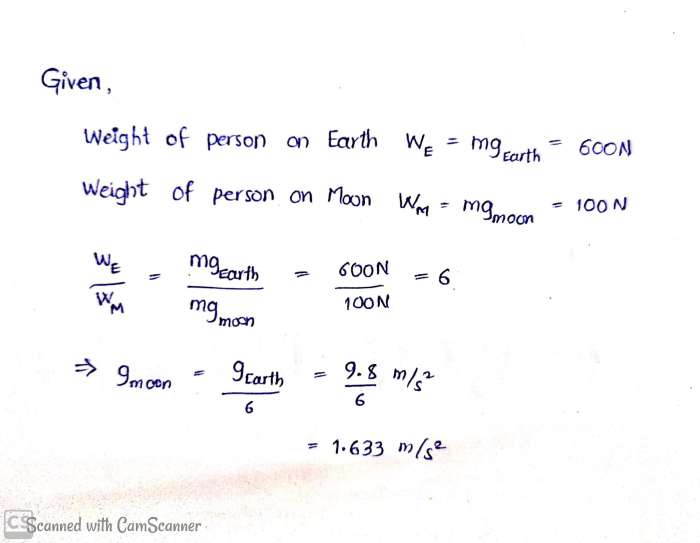 Given,
Weight of person on Earth W_E = mg_Earth = 600N
Weight of person on Moon W_M = mg_moon = 100 N
W_E / W_M = mg_Earth / mg_moon = 600N / 100N = 6
⇒ g_moon = g_Earth / 6 = 9.8 / 6 m/s²
= 1.633 m/s²
CS Scanned with CamScanner